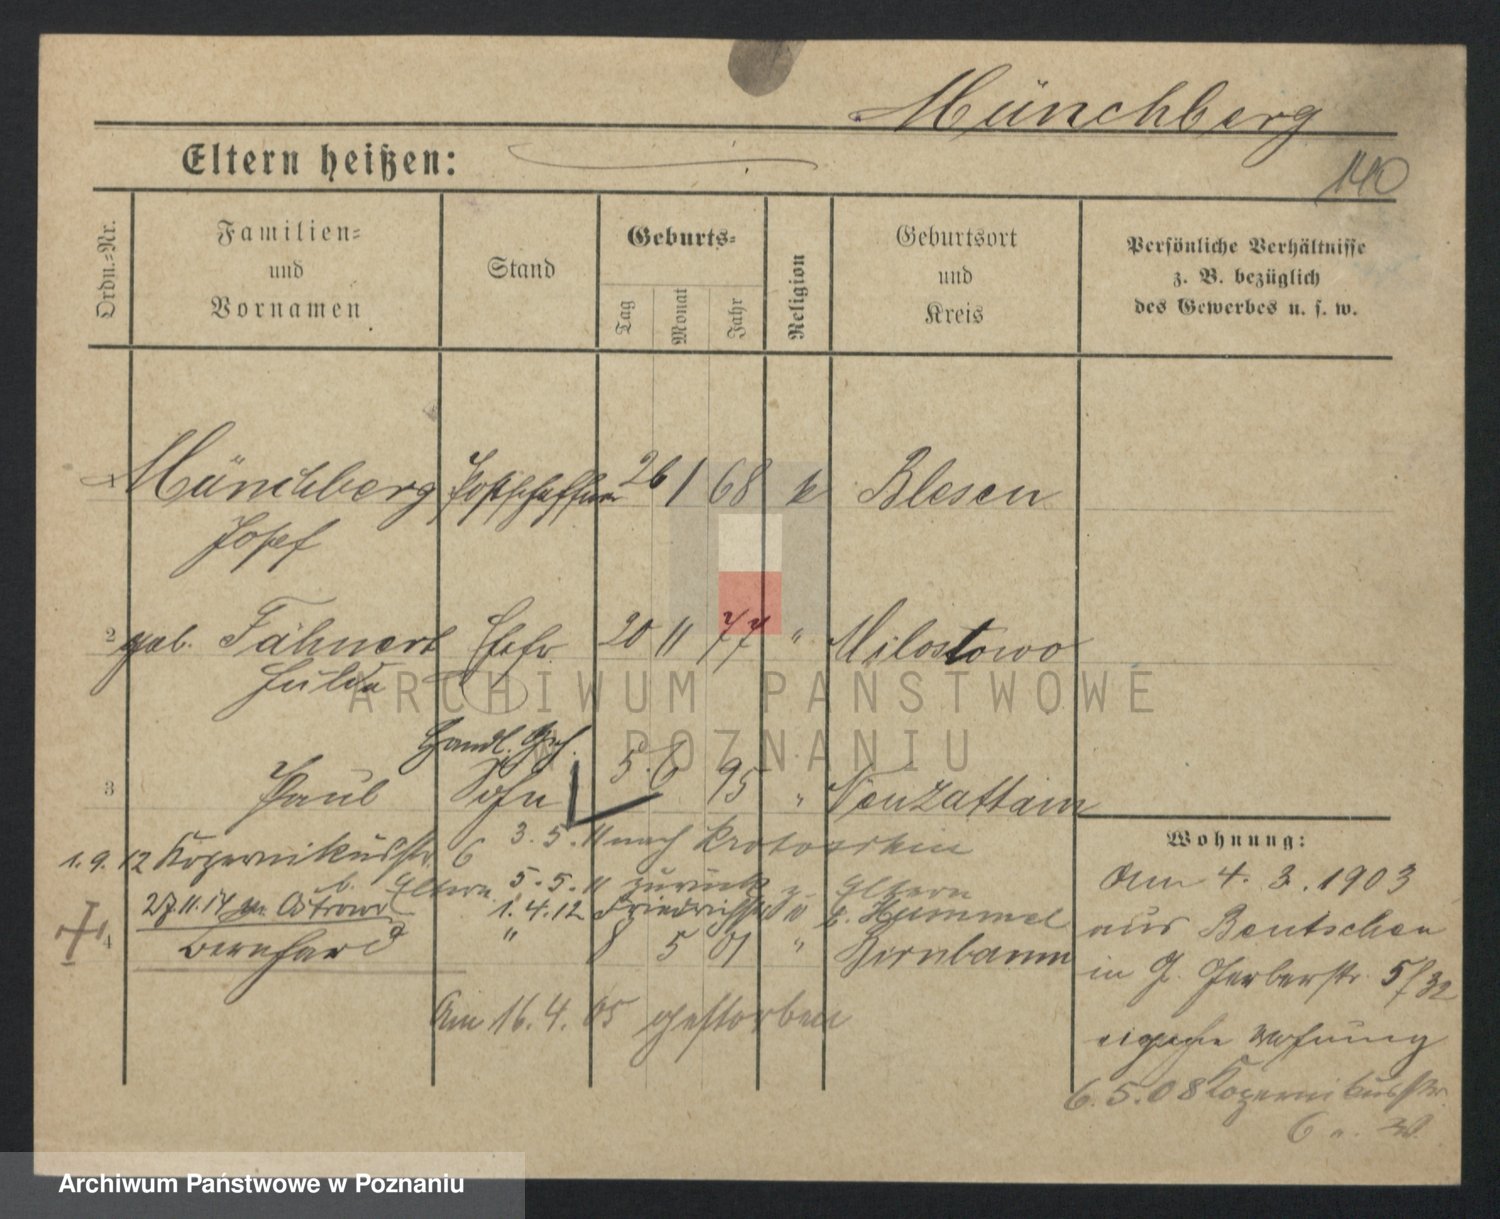 Münchberg
Eltern heißen:
140
Ordn.-Nr.
Familien-
und
Vornamen
Stand
Geburts-
Tag
Monat
Jahr
Religion
Geburtsort
und
Kreis
Persönliche Verhältnisse
z. B. bezüglich
des Gewerbes u. s. w.
1 Münchberg Postschaffner 26 1 68 k Blesen
Josef
2 geb. Fähnert Ehefr 20 11 77 " Milostowo
Hulda
ARCHIWUM PAŃSTWOWE
W POZNANIU
Handl. Geh.
3 Paul Sohn 5. 6 95 " Neuzattum
3. 5. 11 nach Krotoschin
1. 9. 12 Kopernikusstr. 6
b. Eltern 5. 5. 11 zurück z. Eltern
27.11.14 Ostrowo 1. 4. 12 Friedrichstr. b. Hummel
4 Bernhard " 8 5 01 " Birnbaum
Am 16. 4. 05 gestorben
Wohnung:
Am 4. 3. 1903
aus Bentschen
in G. Gerberstr. 5/32
eigene Wohnung
6. 5. 08 Kopernikusstr.
6 a. W.
Archiwum Państwowe w Poznaniu